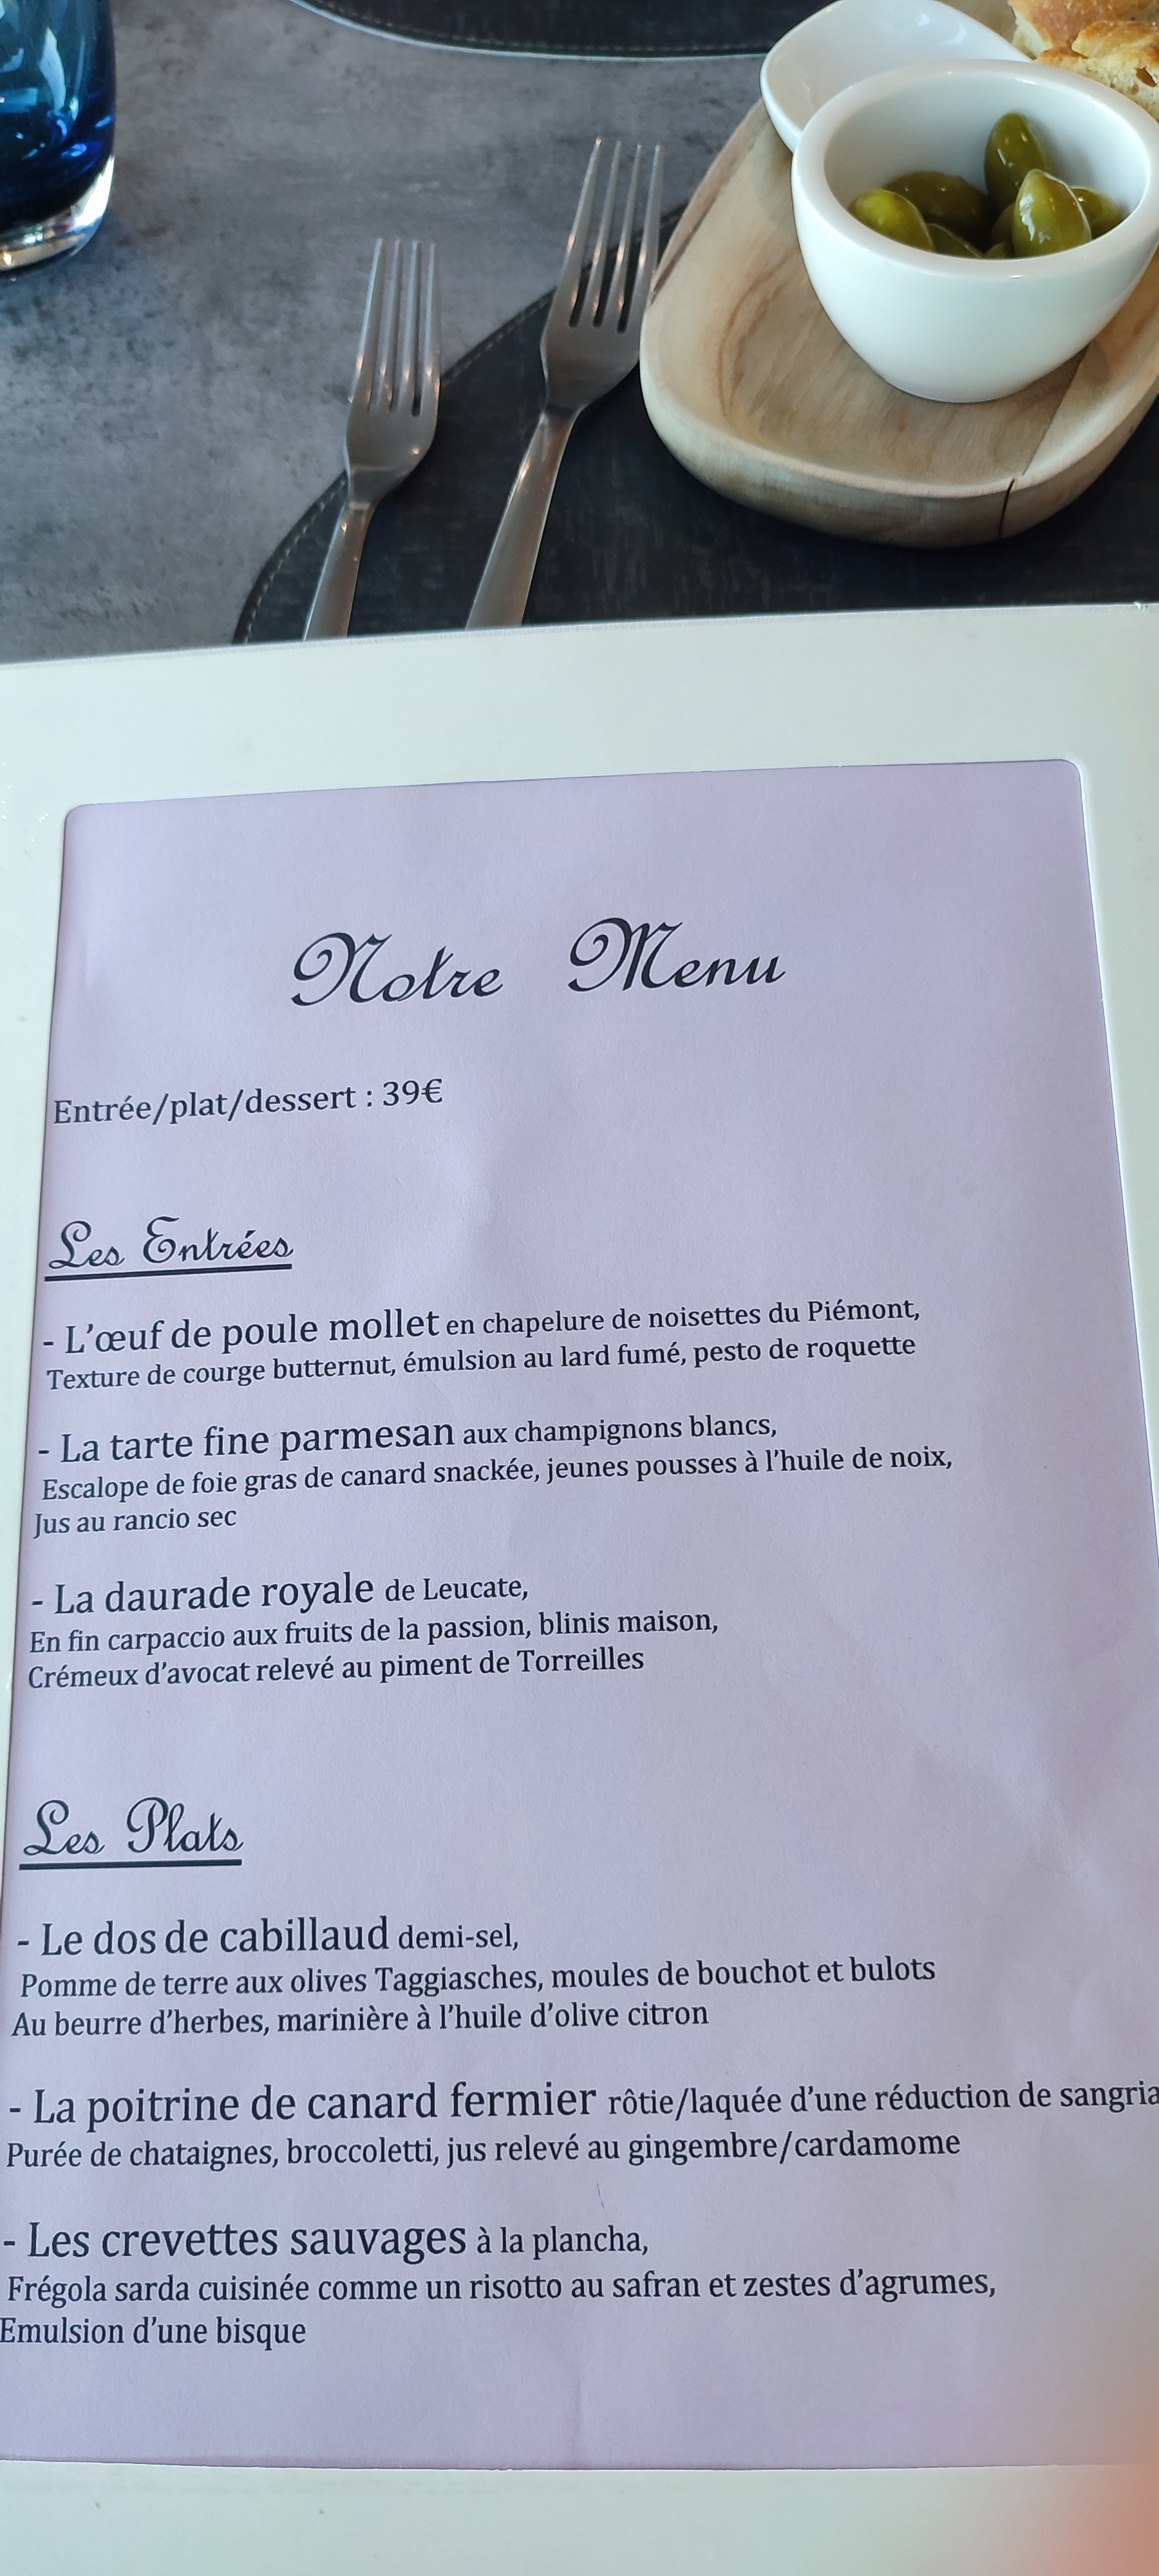 Notre Menu
Entrée/plat/dessert : 39€
Les Entrées
- L'œuf de poule mollet en chapelure de noisettes du Piémont,
Texture de courge butternut, émulsion au lard fumé, pesto de roquette
- La tarte fine parmesan aux champignons blancs,
Escalope de foie gras de canard snackée, jeunes pousses à l'huile de noix,
Jus au rancio sec
- La daurade royale de Leucate,
En fin carpaccio aux fruits de la passion, blinis maison,
Crémeux d'avocat relevé au piment de Torreilles
Les Plats
- Le dos de cabillaud demi-sel,
Pomme de terre aux olives Taggiasches, moules de bouchot et bulots
Au beurre d'herbes, marinière à l'huile d'olive citron
- La poitrine de canard fermier rôtie/laquée d'une réduction de sangria
Purée de chataignes, broccoletti, jus relevé au gingembre/cardamome
- Les crevettes sauvages à la plancha,
Frégola sarda cuisinée comme un risotto au safran et zestes d'agrumes,
Emulsion d'une bisque